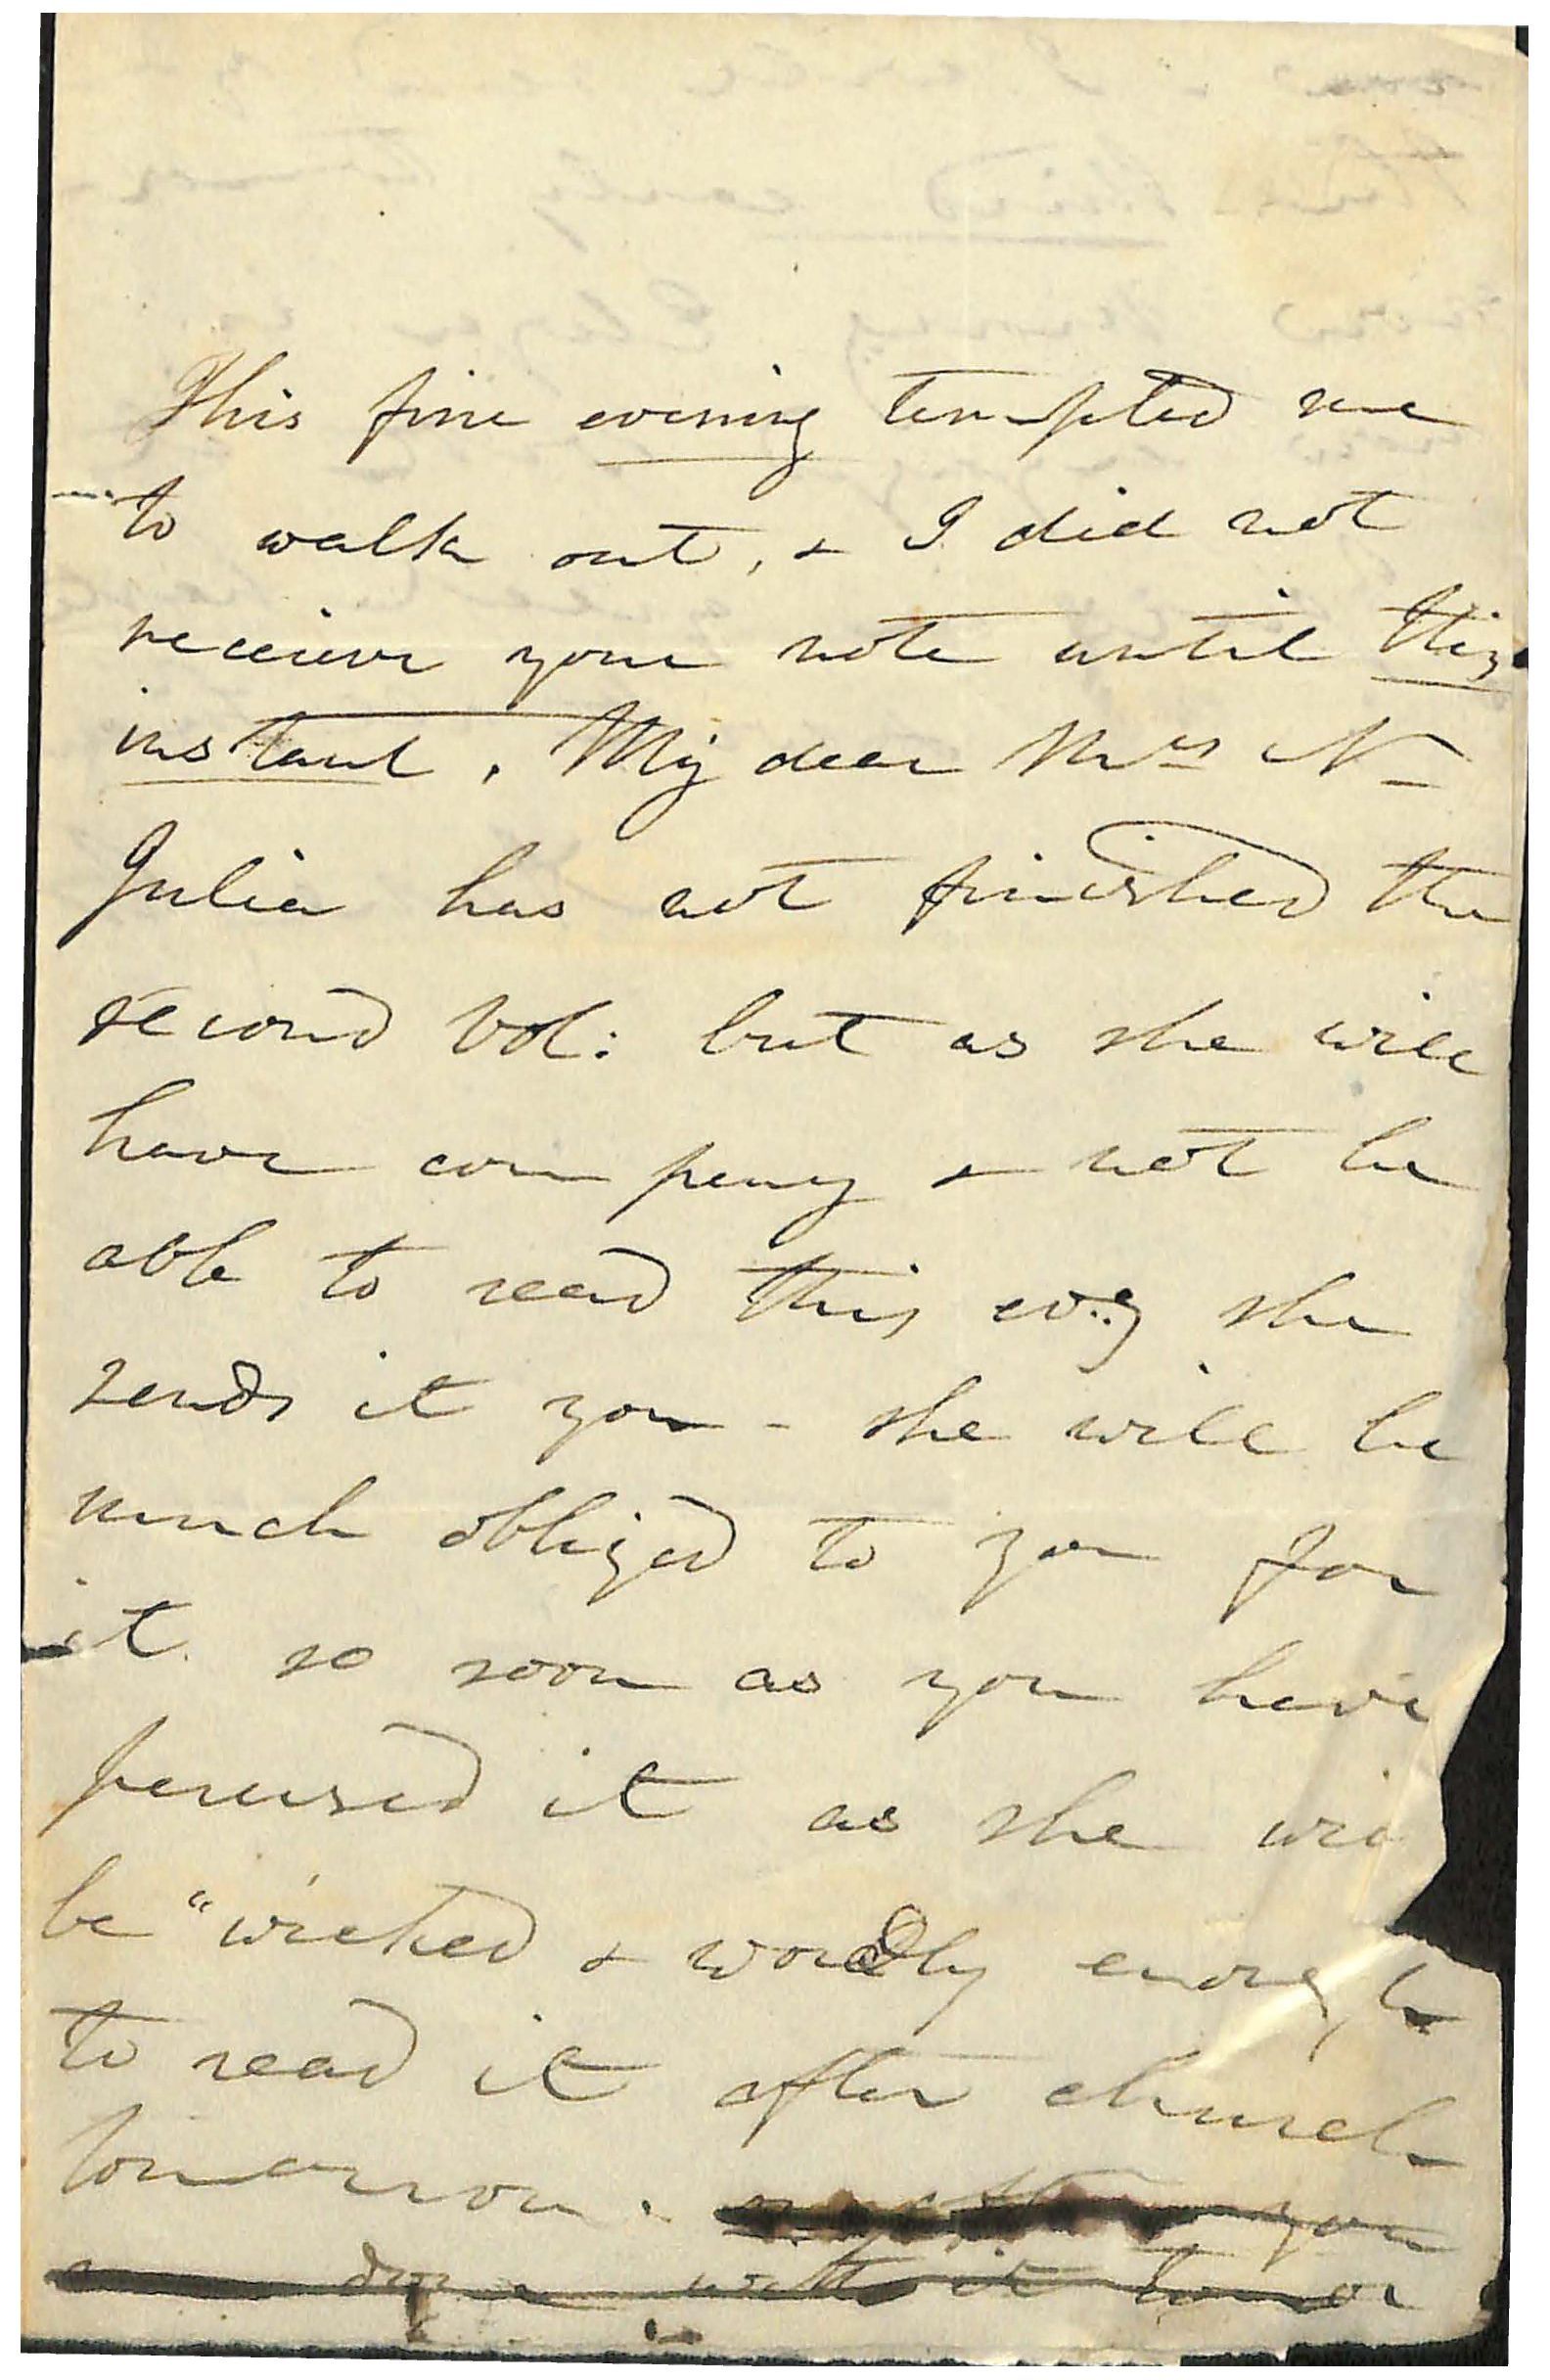 This fine evening tempted me
to walk out, & I did not
receive your note until this
instant, My dear Mrs N–
Julia has not finished the
second Vol: but as she will
have company & not be
able to read this ev:g she
sends it you – she will be
much obliged to you for
it so soon as you have
perused it as she wi
be "wicked & wordly enough
to read it after church
tomorrow. you
done with it